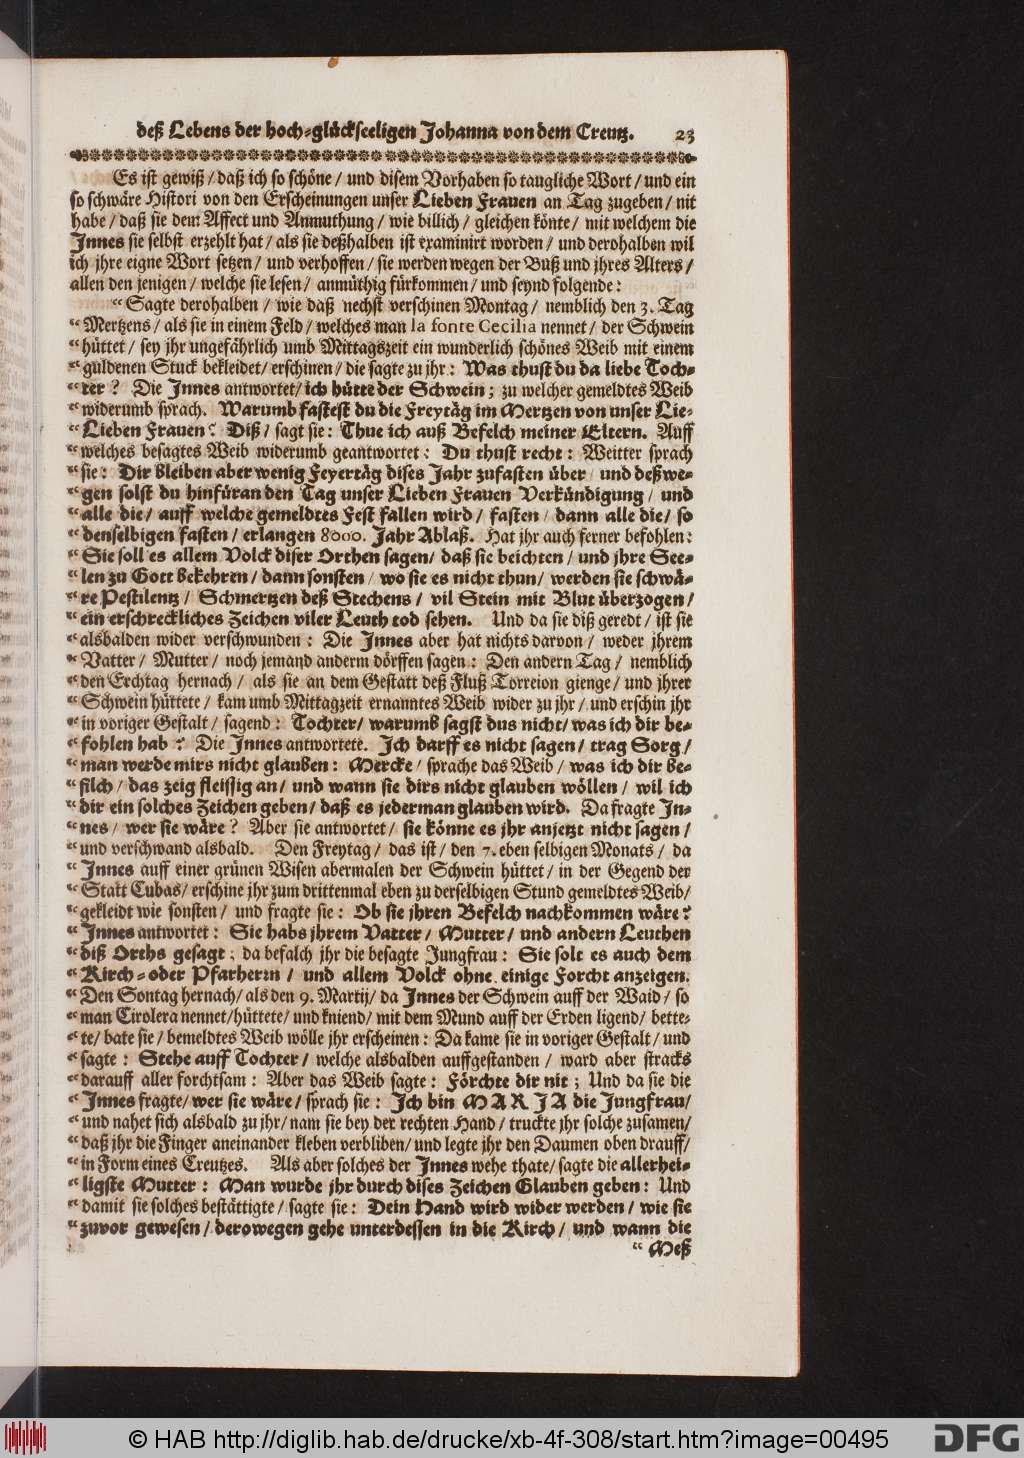 deß Lebens der hoch-glückseeligen Johanna von dem Creutz. 23
Es ist gewiß / daß ich so schöne / und disem Vorhaben so taugliche Wort / und ein
so schwäre Histori von den Erscheinungen unser Lieben Frauen an Tag zugeben / nit
habe / daß sie dem Affect und Anmuthung / wie billich / gleichen könte / mit welchem die
Innes sie selbst erzehlt hat / als sie deßhalben ist examinirt worden / und derohalben wil
ich jhre eigne Wort setzen / und verhoffen / sie werden wegen der Buß und jhres Alters /
allen den jenigen / welche sie lesen / anmüthig fürkommen / und seynd folgende :
“ Sagte derohalben / wie daß nechst verschinen Montag / nemblich den 3. Tag
“ Mertzens / als sie in einem Feld / welches man la fonte Cecilia nennet / der Schwein
“ hüttet / sey jhr ungefährlich umb Mittagszeit ein wunderlich schönes Weib mit einem
“ guldenen Stuck bekleidet / erschinen / die sagte zu jhr : Was thust du da liebe Toch-
“ ter ? Die Innes antwortet / ich hütte der Schwein ; zu welcher gemeldtes Weib
“ widerumb sprach. Warumb fastest du die Freytäg im Mertzen von unser Lie-
“ Lieben Frauen ? Diß / sagt sie : Thue ich auß Befelch meiner Eltern. Auff
“ welches besagtes Weib widerumb geantwortet : Du thust recht : Weitter sprach
“ sie : Dir bleiben aber wenig Feyertäg dises Jahr zufasten über / und deßwe-
“ gen solst du hinfüran den Tag unser Lieben Frauen Verkündigung / und
“ alle die / auff welche gemeldtes Fest fallen wird / fasten / dann alle die / so
“ denselbigen fasten / erlangen 8000. Jahr Ablaß. Hat jhr auch ferner befohlen :
“ Sie soll es allem Volck diser Orthen sagen / daß sie beichten / und jhre See-
“ len zu Gott bekehren / dann sonsten / wo sie es nicht thun / werden sie schwä-
“ re Pestilentz / Schmertzen deß Stechens / vil Stein mit Blut überzogen /
“ ein erschreckliches Zeichen viler Leuth tod sehen. Und da sie diß geredt / ist sie
“ alsbalden wider verschwunden : Die Innes aber hat nichts darvon / weder jhrem
“ Vatter / Mutter / noch jemand anderm dörffen sagen : Den andern Tag / nemblich
“ den Erchtag hernach / als sie an dem Gestatt deß Fluß Torreion gienge / und jhrer
“ Schwein hüttete / kam umb Mittagzeit ernanntes Weib wider zu jhr / und erschin jhr
“ in voriger Gestalt / sagend : Tochter / warumb sagst dus nicht / was ich dir be-
“ fohlen hab ? Die Innes antwortete. Ich darff es nicht sagen / trag Sorg /
“ man werde mirs nicht glauben : Mercke / sprache das Weib / was ich dir be-
“ filch / das zeig fleissig an / und wann sie dirs nicht glauben wöllen / wil ich
“ dir ein solches Zeichen geben / daß es jederman glauben wird. Da fragte In-
“ nes / wer sie wäre ? Aber sie antwortet / sie könne es jhr anjetzt nicht sagen /
“ und verschwand alsbald. Den Freytag / das ist / den 7. eben selbigen Monats / da
“ Innes auff einer grünen Wisen abermalen der Schwein hüttet / in der Gegend der
“ Statt Cubas / erschine jhr zum drittenmal eben zu derselbigen Stund gemeldtes Weib /
“ gekleidt wie sonsten / und fragte sie : Ob sie jhren Befelch nachkommen wäre ?
“ Innes antwortet : Sie habs jhrem Vatter / Mutter / und andern Leuthen
“ diß Orths gesagt ; da befalch jhr die besagte Jungfrau : Sie solt es auch dem
“ Kirch- oder Pfarherrn / und allem Volck ohne einige Forcht anzeigen.
“ Den Sontag hernach / als den 9. Martij / da Innes der Schwein auff der Waid / so
“ man Cirolera nennet / hüttete / und kniend / mit dem Mund auff der Erden ligend / bette-
“ te / bate sie / bemeldtes Weib wölle jhr erscheinen : Da kame sie in voriger Gestalt / und
“ sagte : Stehe auff Tochter / welche alsbalden auffgestanden / ward aber stracks
“ darauff aller forchtsam : Aber das Weib sagte : Förchte dir nit ; Und da sie die
“ Innes fragte / wer sie wäre / sprach sie : Ich bin MARJA die Jungfrau /
“ und nahet sich alsbald zu jhr / nam sie bey der rechten Hand / truckte jhr solche zusamen /
“ daß jhr die Finger aneinander kleben verbliben / und legte jhr den Daumen oben drauff /
“ in Form eines Creutzes. Als aber solches der Innes wehe thate / sagte die allerhei-
“ ligste Mutter : Man wurde jhr durch dises Zeichen Glauben geben : Und
“ damit sie solches bestättigte / sagte sie : Dein Hand wird wider werden / wie sie
“ zuvor gewesen / derowegen gehe unterdessen in die Kirch / und wann die
“ Meß
© HAB http://diglib.hab.de/drucke/xb-4f-308/start.htm?image=00495
DFG